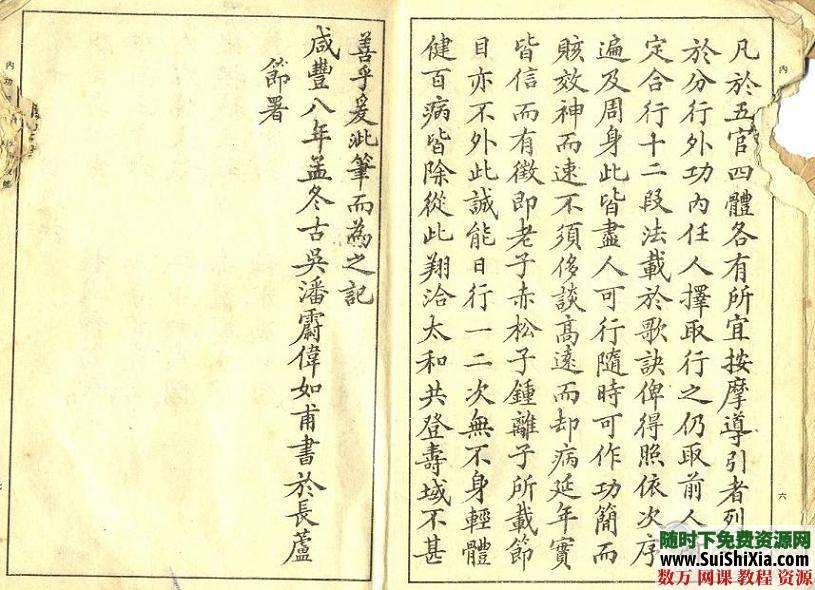 凡於五官四體各有所宜按摩導引者列
於分行外功內任人擇取行之仍取前人
定合行十二段法載於歌訣俾得照依次序
遍及周身此皆盡人可行隨時可作功簡而
賅效神而速不須侈談高遠而却病延年實
皆信而有徵即老子赤松子鍾離子所載節
目亦不外此誠能日行一二次無不身輕體
健百病皆除從此翔洽太和共登壽域不甚
善乎爰泚筆而為之記
咸豐八年孟冬古吳潘霨偉如甫書於長蘆
節署
內功
內
六
随时下免费资源网
www.SuiShiXia.com
数万 网课 教程 资源